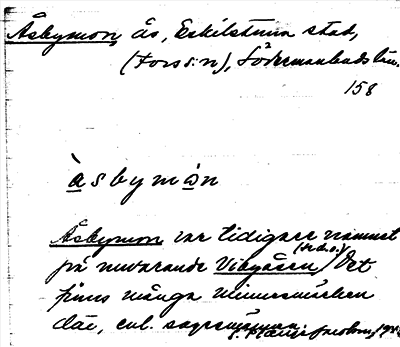 Åsbymon, ås, Eskilstuna stad,
(Fors s:n), Södermanlands län.
158
àsbymòn
Åsbymon var tidigare namnet
på nuvarande Vibyåsen (se d.o.) Det
finns många minnesmärken
där, enl.